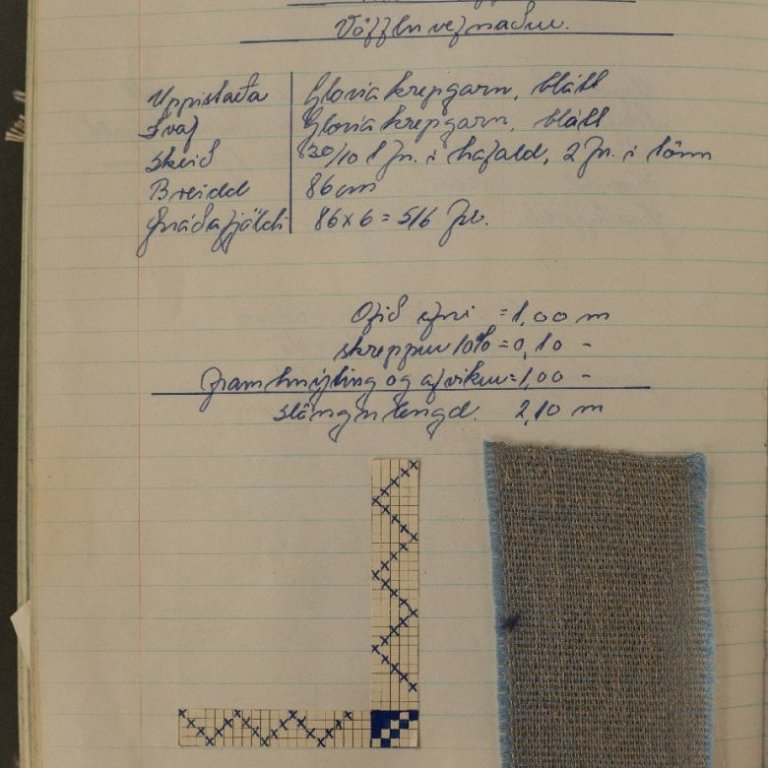 Vöffluvefnaður.
Uppistaða Gloria krepgarn, blátt
Ívaf Gloria krepgarn, blátt
Skeið 30/10 1 þr. í hafald, 2 þr. í tönn
Breidd 86 cm
Þráðafjöldi 86 x 6 = 516 þr.
Ofið efni = 1,00 m
skreppur 10% = 0,10 -
Framhnýting og afvikur = 1,00 -
slöngulengd 2,10 m